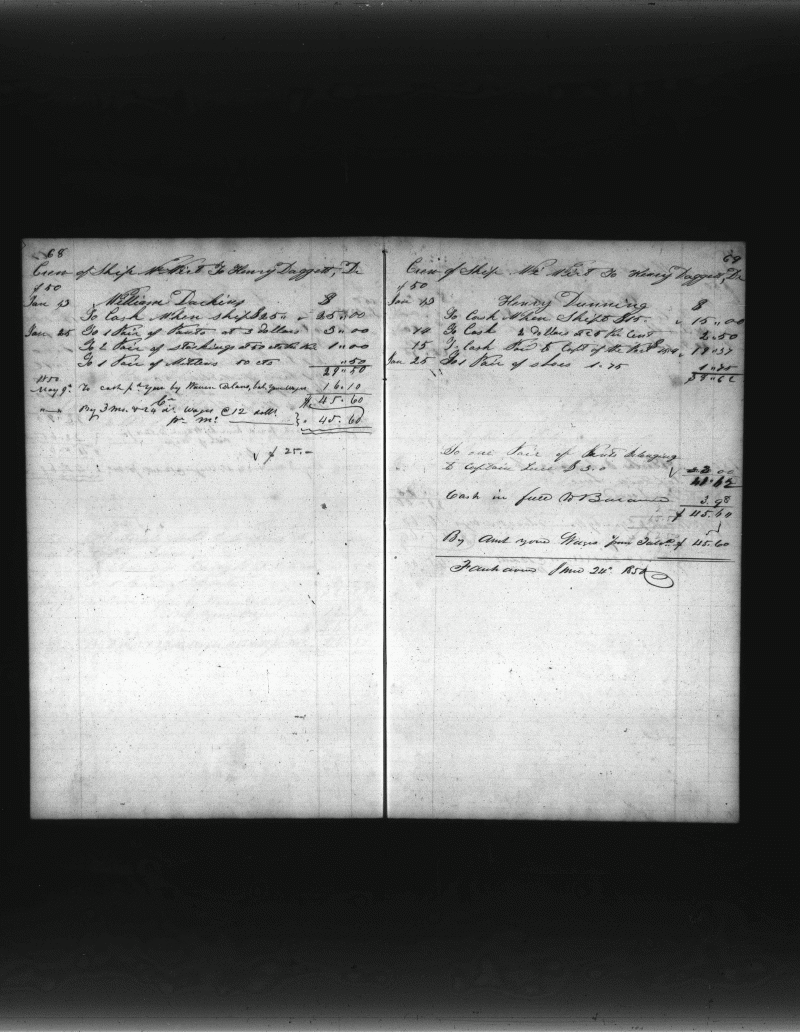 68
Crew of Ship To Henry Daggett, Dr
1850
Jan 13 William $
To Cash When ship $25 25.00
Jan 25 To 1 Pair of Pants at 3 Dollars 3.00
To 2 Pair of stockings at 50 cts the 1.00
To 1 Pair of Mittens 50 cts .50
29.50
1850
May 9 To cash pd you by Warren bal your wages 16.10
$45.60
Cr
By 3 mo. & 24 ds wages @ 12 dolls
pr mo. 45.60
√ $ 25.-
69
Crew of Ship To Henry Daggett, Dr
1850
Jan 13 Henry Dunning $
To Cash When Ship $15. 15.00
14 To Cash 2 Dollars & 50 the Cent 2.50
15 To Cash Capt of the 19.37
Jan 25 To 1 Pair of shoes 1.75 1.75
38.62
To one Pair of Pants belonging
to Captain Luce $3.0 3.00
41.62
Cash in full to Balance 3.98
$ 45.60
By Amt your Wages $ 45.60
Fairhaven 24 1850